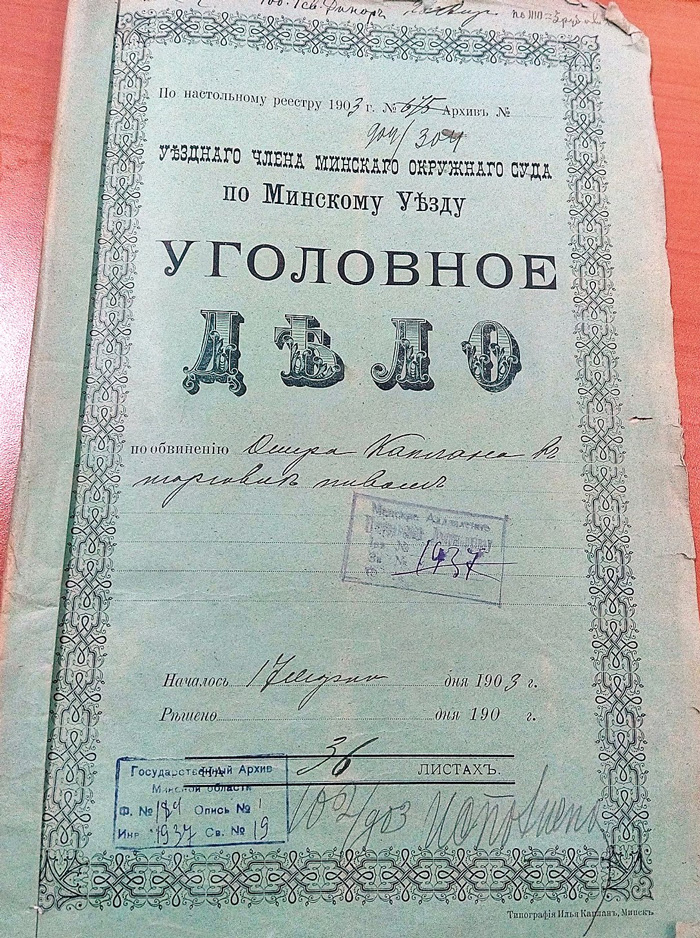 По настольному реестру 1903 г. № 675 Архивъ №
904/304
УѢЗДНАГО ЧЛЕНА МИНСКАГО ОКРУЖНАГО СУДА
по Минскому Уѣзду
УГОЛОВНОЕ
ДѢЛО
по обвиненію Ошера Каплана въ
торговлѣ пивомъ
1937
Началось 17 дня 1903 г.
Рѣшено дня 190 г.
36 ЛИСТАХЪ.
Государственный Архив
Минской области
Ф. № 184 Опись № 1
Инв 1937 Св. № 19
Типографія Илья Капланъ, Минскъ